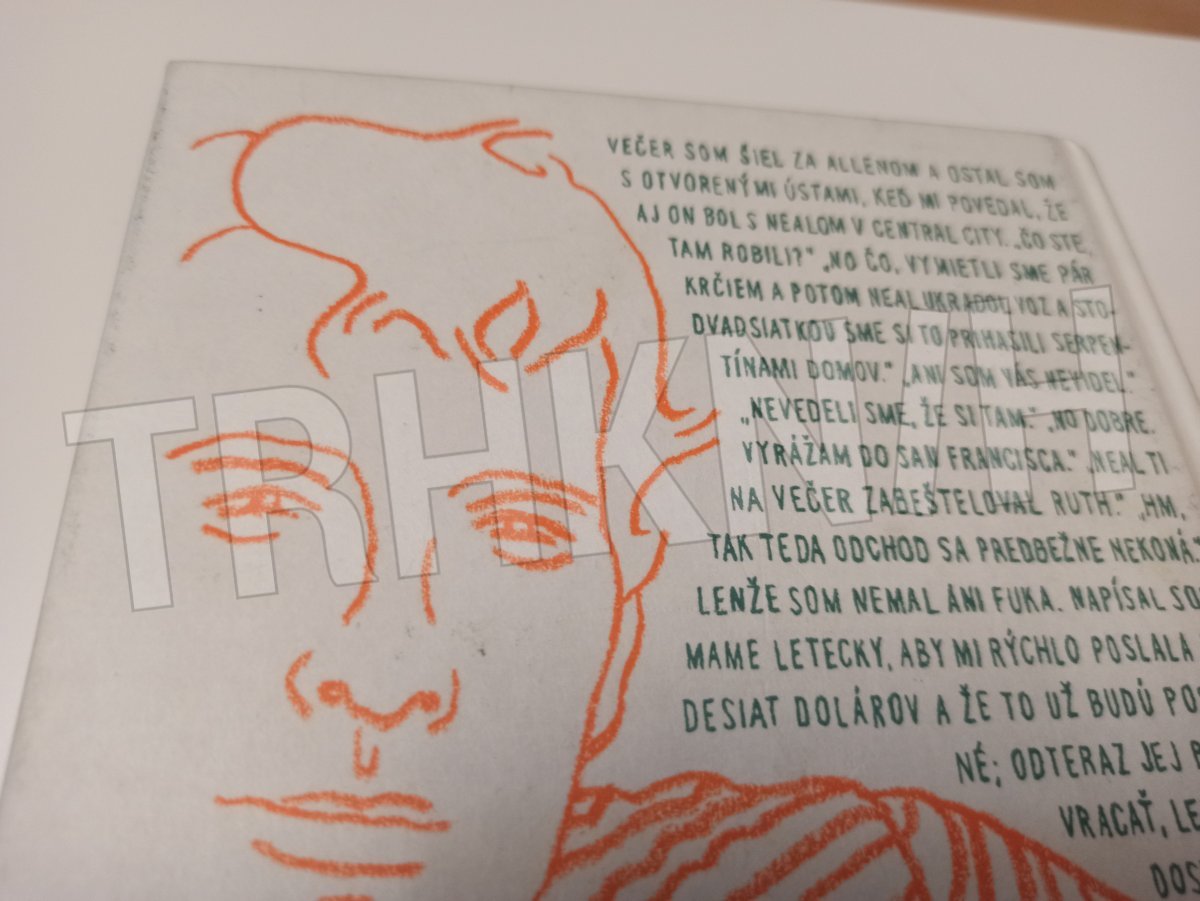 VEČER SOM ŠIEL ZA ALLENOM A OSTAL SOM
S OTVORENÝMI ÚSTAMI, KEĎ MI POVEDAL, ŽE
AJ ON BOL S NEALOM V CENTRAL CITY. „ČO STE
TAM ROBILI?" „NO ČO, VYMIETLI SME PÁR
KRČIEM A POTOM NEAL UKRADOL VOZ A STO-
DVADSIATKOU SME SI TO PRIHASILI SERPEN-
TÍNAMI DOMOV." „ANI SOM VÁS NEVIDEL."
„NEVEDELI SME, ŽE SI TAM." „NO DOBRE.
VYRÁŽAM DO SAN FRANCISCA." „NEAL TI
NA VEČER ZABEŠTELOVAL RUTH." „HM,
TAK TEDA ODCHOD SA PREDBEŽNE NEKONÁ."
LENŽE SOM NEMAL ANI FUKA. NAPÍSAL SO
MAME LETECKY, ABY MI RÝCHLO POSLALA
DESIAT DOLÁROV A ŽE TO UŽ BUDÚ PO
NÉ; ODTERAZ JEJ
VRACAŤ, LE
DOS
TRHKNIH